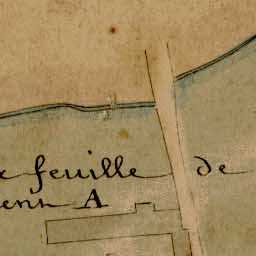 e feuille de
ent A